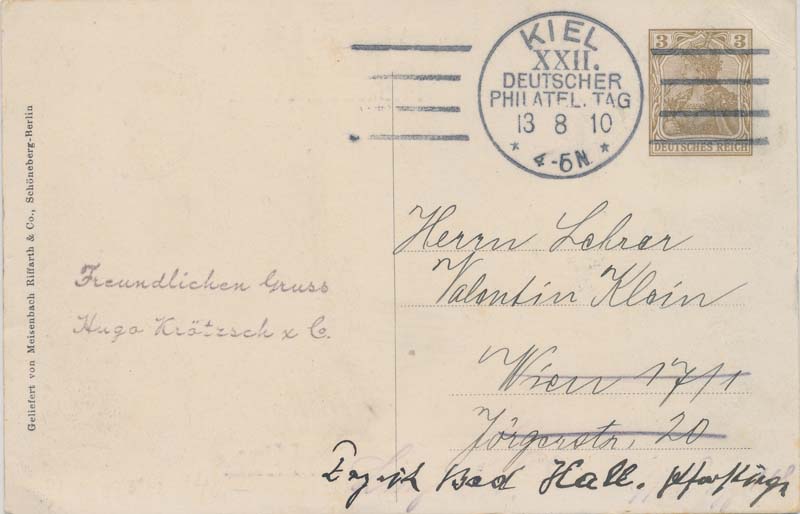 Geliefert von Meisenbach Riffarth & Co., Schöneberg-Berlin
KIEL
XXII.
DEUTSCHER
PHILATEL. TAG
13 8 10
* 4-5 N *
3 3
DEUTSCHES REICH
Freundlichen Gruss
Hugo Krötzsch & Co.
Herrn Lehrer
Valentin Klein
Wien 17/1
Jörgerstr. 20
Bad Hall.